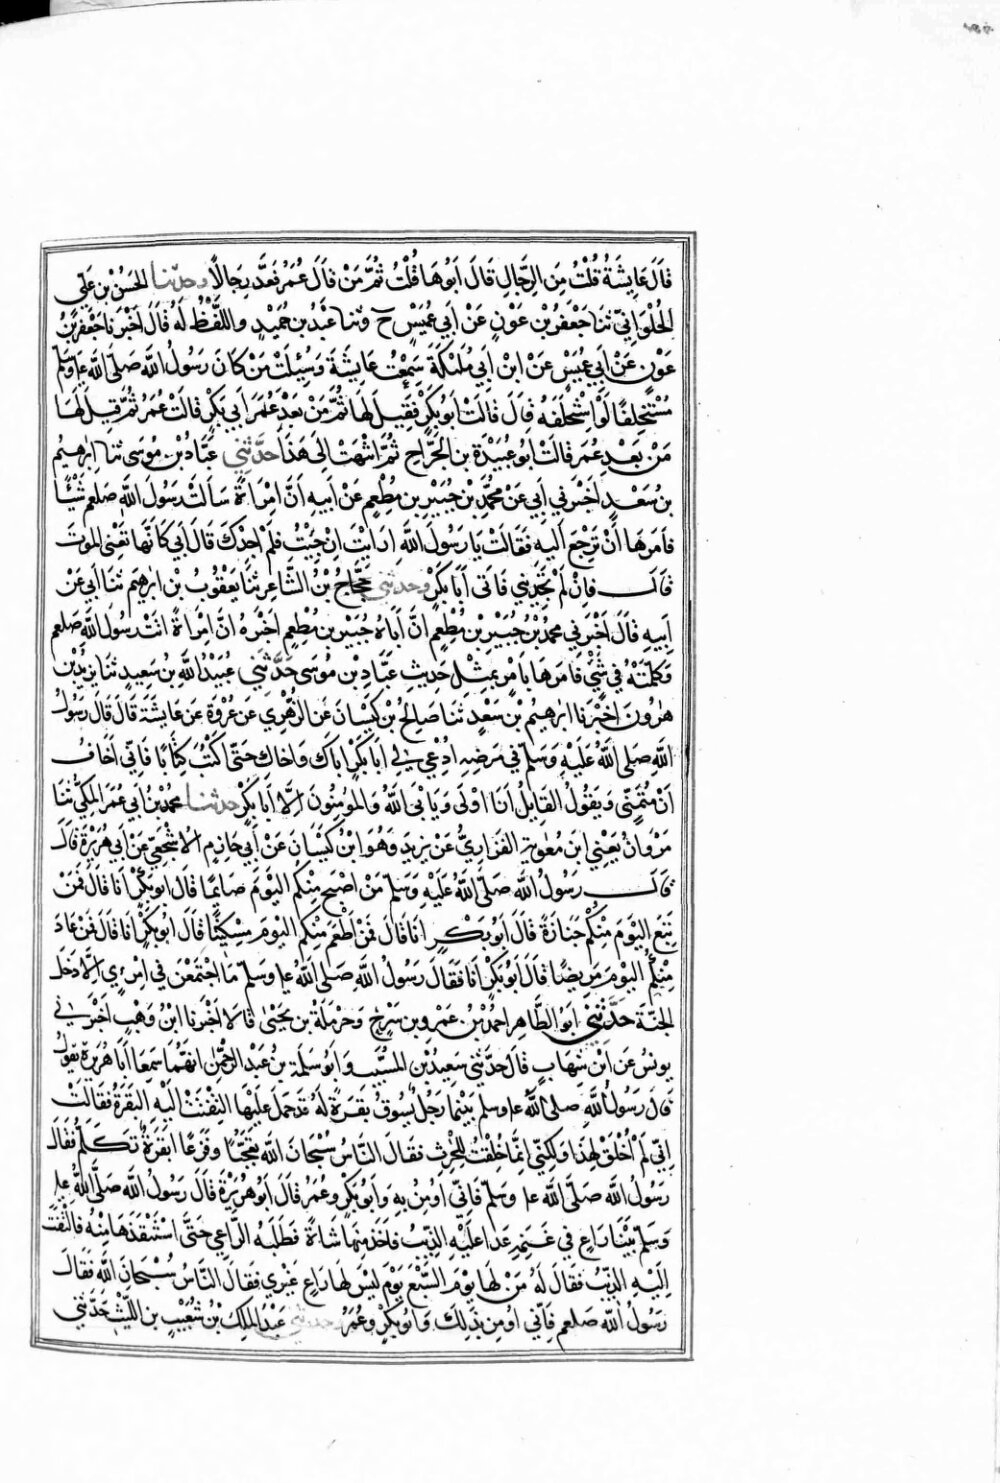 قَالَ عَايِشَةُ قُلْتُ مِنَ الرِّجَالِ قَالَ اَبُوهَا قُلْتُ ثُمَّ مَنْ قَالَ عُمَرُ فَعَدَّ رِجَالًا وحدثنا الحَسَنُ بن عَلِي
الحُلْوَانِيّ ثنا جَعْفَرُ بْن عَوْنٍ عَنْ اَبِي عُمَيْسٍ ح وثنا عَبْدُ بن حُمَيْدٍ واللَّفْظُ لَهُ قَالَ اَخْبَرَنَا جَعْفَر بْنُ
عَوْنٍ عَنْ اَبِي عُمَيْسٍ عَنْ ابْنِ اَبِي مُلَيْكَةَ سَمِعْتُ عَايِشَةَ وَسُئِلَتْ مَنْ كَانَ رَسُولُ اللَّه صَلَّى اللَّه علو سلم
مُسْتَخْلِفًا لَوِ اسْتَخْلَفَهُ قَالَ قَالَتْ اَبُو بَكْرٍ فَقِيلَ لَهَا ثُمَّ مَنْ بَعْدَ اَبِي بَكْرٍ قَالَتْ عُمَرُ ثُمَّ قِيلَ لَهَا
مَنْ بَعْدِ عُمَرَ قَالَتْ اَبُو عُبَيْدَةَ بن الجَرَّاحِ ثُمَّ انْتَهَتْ اِلَى هَذَا حَدَّثَنِي عَبَّادُ بْن مُوسَى ثنا اِبْرهِيمُ
بْنُ سَعْدٍ اَخْبَرَنِي اَبِي عَنْ مُحَمَّدِ بْن جُبَيْرِ بن مُطْعِمٍ عَنْ اَبِيهِ اَنَّ امْرَاَةً سَاَلَتْ رَسُولَ اللَّهِ صلعم شَيْئًا
فَاَمَرَهَا اَنْ تَرْجِعَ اِلَيهِ فَقَالَتْ يَا رَسُولَ اللَّه اَرَاَيْتَ اِنْ جِيْتُ فَلَمْ اَجِدْكَ قَالَ اَبِي كَاَنَّهَا تَعْنِي المَوتَ
قَالَ فَاِنْ لَمْ تَجِدِينِي فَاتِي اَبَا بَكْرٍ وحدثني حَجَّاجُ بْنُ الشَّاعِرِ ثَنَا يَعْقُوبُ بْن اِبْرهِيم ثنا اَبِي عَنْ
اَبِيهِ قَالَ اَخْبَرَنِي مُحَمَّدُ بْنُ جُبَيْرِ بْنِ مُطْعِمٍ اَنَّ اَبَاهُ جُبَيْر بن مُطْعِمٍ اَخْبَرَهُ اَنَّ امْرَاَةً اَتَتْ رَسُولَ اللَّه صلعم
وَكَلَّمَتْهُ فِي شَيْءٍ فَاَمَرَهَا بِاَمْرٍ بِمِثْلِ حَدِيثِ عَبَّادِ بْن مُوسَى حَدَّثَنِي عُبَيْدُ اللَّهِ بْن سَعِيدٍ ثنا يَزِيدُ بْن
هٰرُونَ اَخْبَرَنَا اِبْرَاهِيمُ بن سَعْدٍ ثَنَا صَالِحُ بْن كَيْسَانَ عَنِ الزُّهْرِي عَنْ عُرْوَةَ عَنْ عَايِشَةَ قَالَ قَالَ رَسُولُ
اللَّه صَلَّى اللَّهُ عَلَيْهِ وَسَلَّم فِي مَرَضِهِ اُدْعِي لِي اَبَا بَكْرٍ اَبَاكَ وَاَخَاكِ حَتَّى اَكْتُبَ كِتَابًا فَاِنِّي اَخَافُ
اَنْ مُتَمَنٍّ وَيَقُولُ القَايِلُ اَنَا اَوْلَى وَيَابَى اللَّهُ وَالمُؤمِنُونَ اِلَّا اَبَا بَكْرٍ حدثنا مُحَمَّدُ بْنُ اَبِي عُمَرَ المَكِّيُّ ثَنَا
مَرْوَانُ يَعْنِي ابن مُعَوِيةَ الفَزَارِيُّ عَنْ يَزِيدَ وَهُوَ ابْنُ كَيْسَانَ عَنْ اَبِي حَازِمٍ الاَشْجَعِيّ عَنْ اَبِي هُرَيْرَةَ قَالَ
قَالَ رَسُولُ اللَّه صَلَّى اللَّهُ عَلَيْهِ وَسَلَّم مَنْ اَصْبَحَ مِنْكُم اليَوْمَ صَايِمًا قَالَ اَبُو بَكْرٍ اَنَا قَالَ فَمَنْ
تَبِعَ اليَوْمَ مِنْكُم جَنَازَةً قَالَ اَبُو بَكْرٍ اَنَا قَالَ فَمَنْ اَطْعَمَ مِنكُم اليَوْمَ مِسْكِينًا قَالَ اَبُو بَكْرٍ اَنَا قَالَ فَمَنْ عَادَ
مِنْكُمُ اليَوْمَ مَرِيضًا قَالَ اَبُو بَكْرٍ اَنَا فَقَالَ رَسُولُ اللَّه صَلَّى اللَّهُ علو وسلم مَا اجْتَمَعْنَ فِي امْرِيٍ اِلَّا دَخَلَ
الجَنَّةَ حَدَّثَنِي اَبُو الطَّاهِرِ اَحْمَدُ بْن عَمْرِو بن سَرْحٍ وَحَرْمَلَةُ بن يَحْيَى قَالَا اَخْبَرَنَا ابْنُ وَهْبٍ اَخْبَرَنِي
يونسُ عَن ابْنِ شِهَابٍ قَالَ حَدَّثَنِي سَعِيدُ بْن المُسَيَّبِ وَاَبُو سَلَمَة بْنُ عَبْدِ الرَّحْمٰنِ اَنَّهُمَا سَمِعَا اَبَا هُرَيْرَةَ يَقُولُ
قَالَ رَسُولُ اللَّهِ صلى اللَّه علو وسلم بَيْنَمَا رَجُلٌ يَسُوقُ بَقَرَةً لَهُ قَدْ حَمَلَ عَلَيْهَا الْتَفَتَتْ اِلَيْهِ البَقَرَةُ فَقَالَتْ
اِنِّي لَمْ اُخْلَقْ لِهَذَا وَلَكِنِّي اِنَّمَا خُلِقْتُ لِلْحَرْثِ فَقَالَ النَّاسُ سُبْحَانَ اللَّه تَعَجُّبًا وَفَزَعًا اَبَقَرَةٌ تَكَلَّمُ فَقَالَ
رَسُولُ اللَّه صَلَّى اللَّه علو وَسلَّم فَاِنِّي اُومِنُ بِهِ وَاَبُو بَكْرٍ وعُمَرُ قَالَ اَبُو هُرَيْرَةَ قَالَ رَسُولُ اللَّه صَلَّى اللَّهُ عليه
وَسَلَّم بَيْنَا رَاعٍ فِي غَنَمِهِ عَدَا عَلَيْهِ الذِّيبُ فَاَخَذَ مِنْهَا شَاةً فَطَلَبَهُ الرَّاعِي حَتَّى اسْتَنْقَذَهَا مِنْهُ فَالْتَفَتَ
اِلَيْهِ الذِّيْبُ فَقَالَ لَهُ مَنْ لَهَا يَوْمَ السَّبُعِ يَوْمَ لَيْسَ لَهَا رَاعٍ غَيْرِي فَقَالَ النَّاسُ سُبْحَانَ اللَّه فَقَالَ
رَسُولُ اللَّه صلعم فَاِنِّي اُومِنُ بِذَلِكَ وَاَبُو بَكْرٍ وعُمَرُ وحدثني عَبْدُ المَلِكِ بْنُ شُعَيْبِ بن اللَّيْثِ حَدَّثَنِي